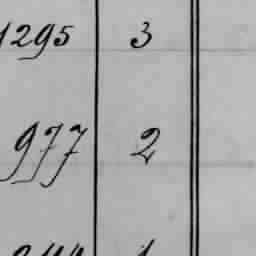 1295 3
977 2